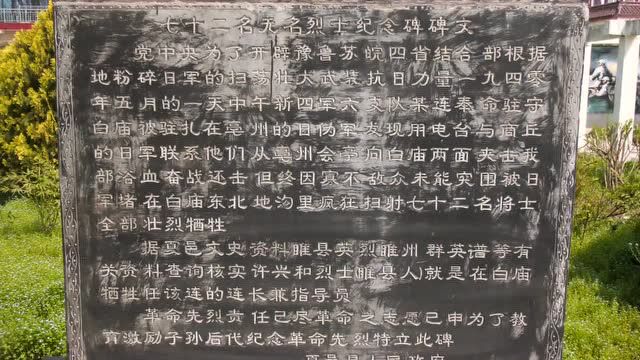 七十二名无名烈士纪念碑碑文
党中央为了开辟豫鲁苏皖四省结合部根据
地粉碎日军的扫荡壮大武装抗日力量一九四零
年五月的一天中午新四军六支队某连奉命驻守
白庙被驻扎在亳州的日伪军发现用电台与商丘
的日军联系他们从亳州会亭向白庙两面夹击我
部浴血奋战还击但终因寡不敌众未能突围被日
军堵在白庙东北地沟里疯狂扫射七十二名将士
全部壮烈牺牲
据夏邑文史资料睢县英烈睢州群英谱等有
关资料查询核实许兴和烈士睢县人)就是在白庙
牺牲任该连的连长兼指导员
革命先烈责任已尽革命之志愿已申为了教
育激励子孙后代纪念革命先烈特立此碑